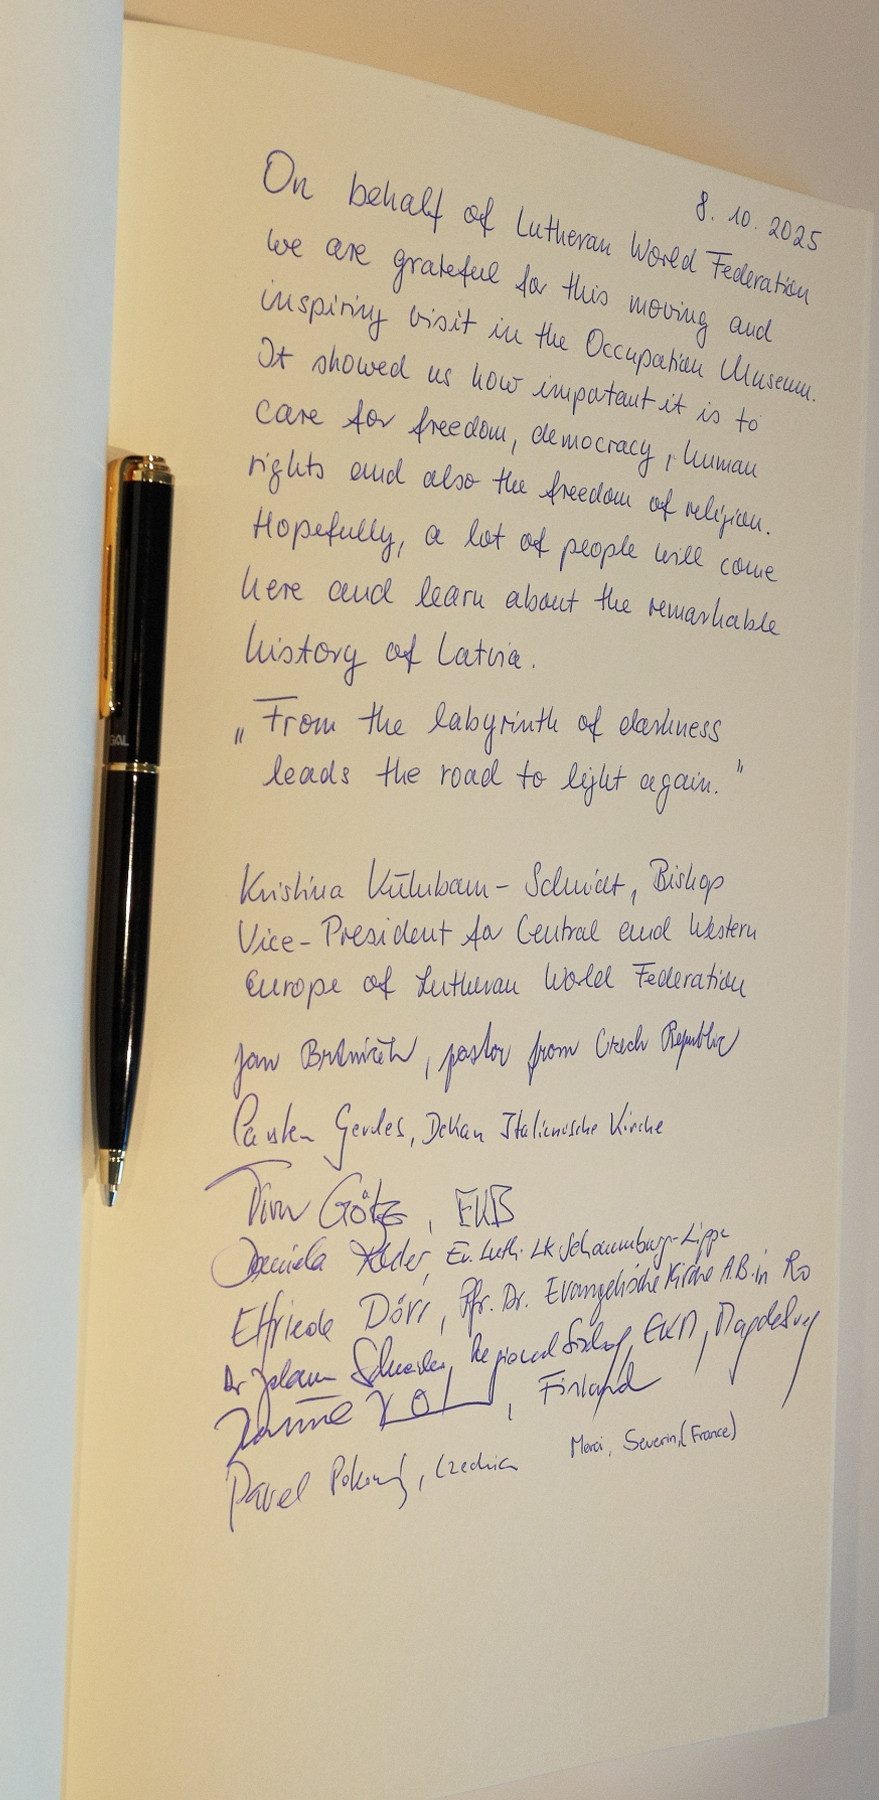 8. 10. 2025
On behalf of Lutheran World Federation
we are grateful for this moving and
inspiring visit in the Occupation Museum.
It showed us how impotant it is to
care for freedom, democracy, human
rights and also the freedom of religion.
Hopefully, a lot of people will come
here and learn about the remarkable
history of Latvia.
„From the labyrinth of darkness
leads the road to light again."
Kristina Kühnbaum-Schmidt, Bishop
Vice-President for Central and Western
Europe of Lutheran World Federation
Jan , pastor from Czech Republic
Carsten Gerdes, Dekan Italienische Kirche
Götz, EKB
Daniela , Ev. Luth. LK Schaumburg-Lippe
Elfriede Dörr, Pfr. Dr. Evangelische Kirche A.B. in Ro
Dr Johann Schneider, Regional , EKM, Magdeburg
, Finland
Pavel Pokorný, Czechia
Merci, Severin, (France)
GAL